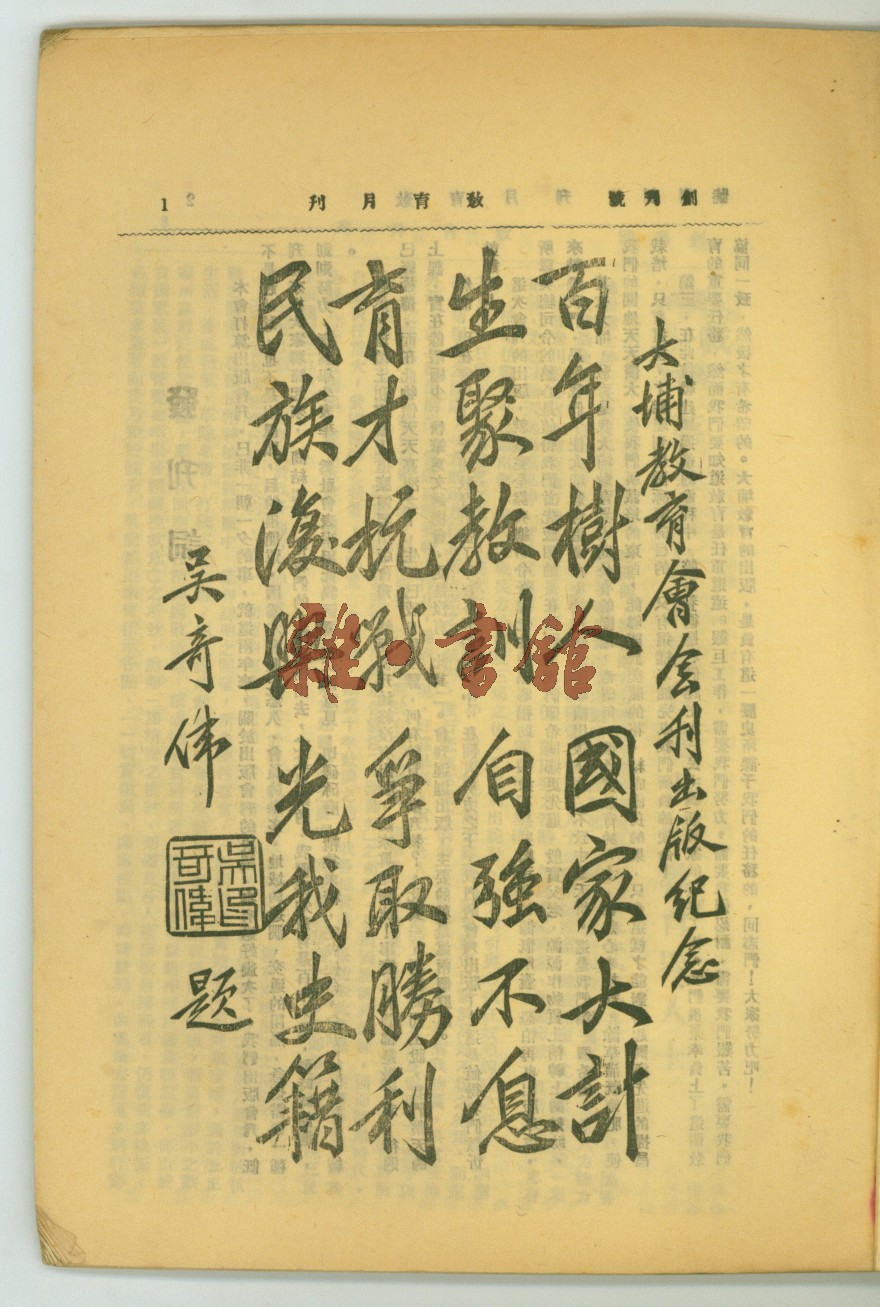 創刊號 教育月刊 1
大埔教育會會刊出版紀念
百年樹人 國家大計
生聚教訓 自強不息
育才抗戰 爭取勝利
民族復興 光我史籍
吳奇偉
吳奇偉印
題
雜·書館